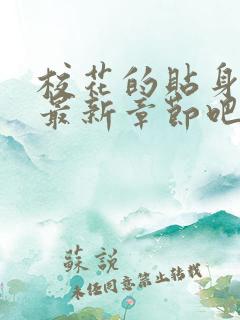 校花的貼身
最新章節吧
蘇說
未經同意禁止轉載